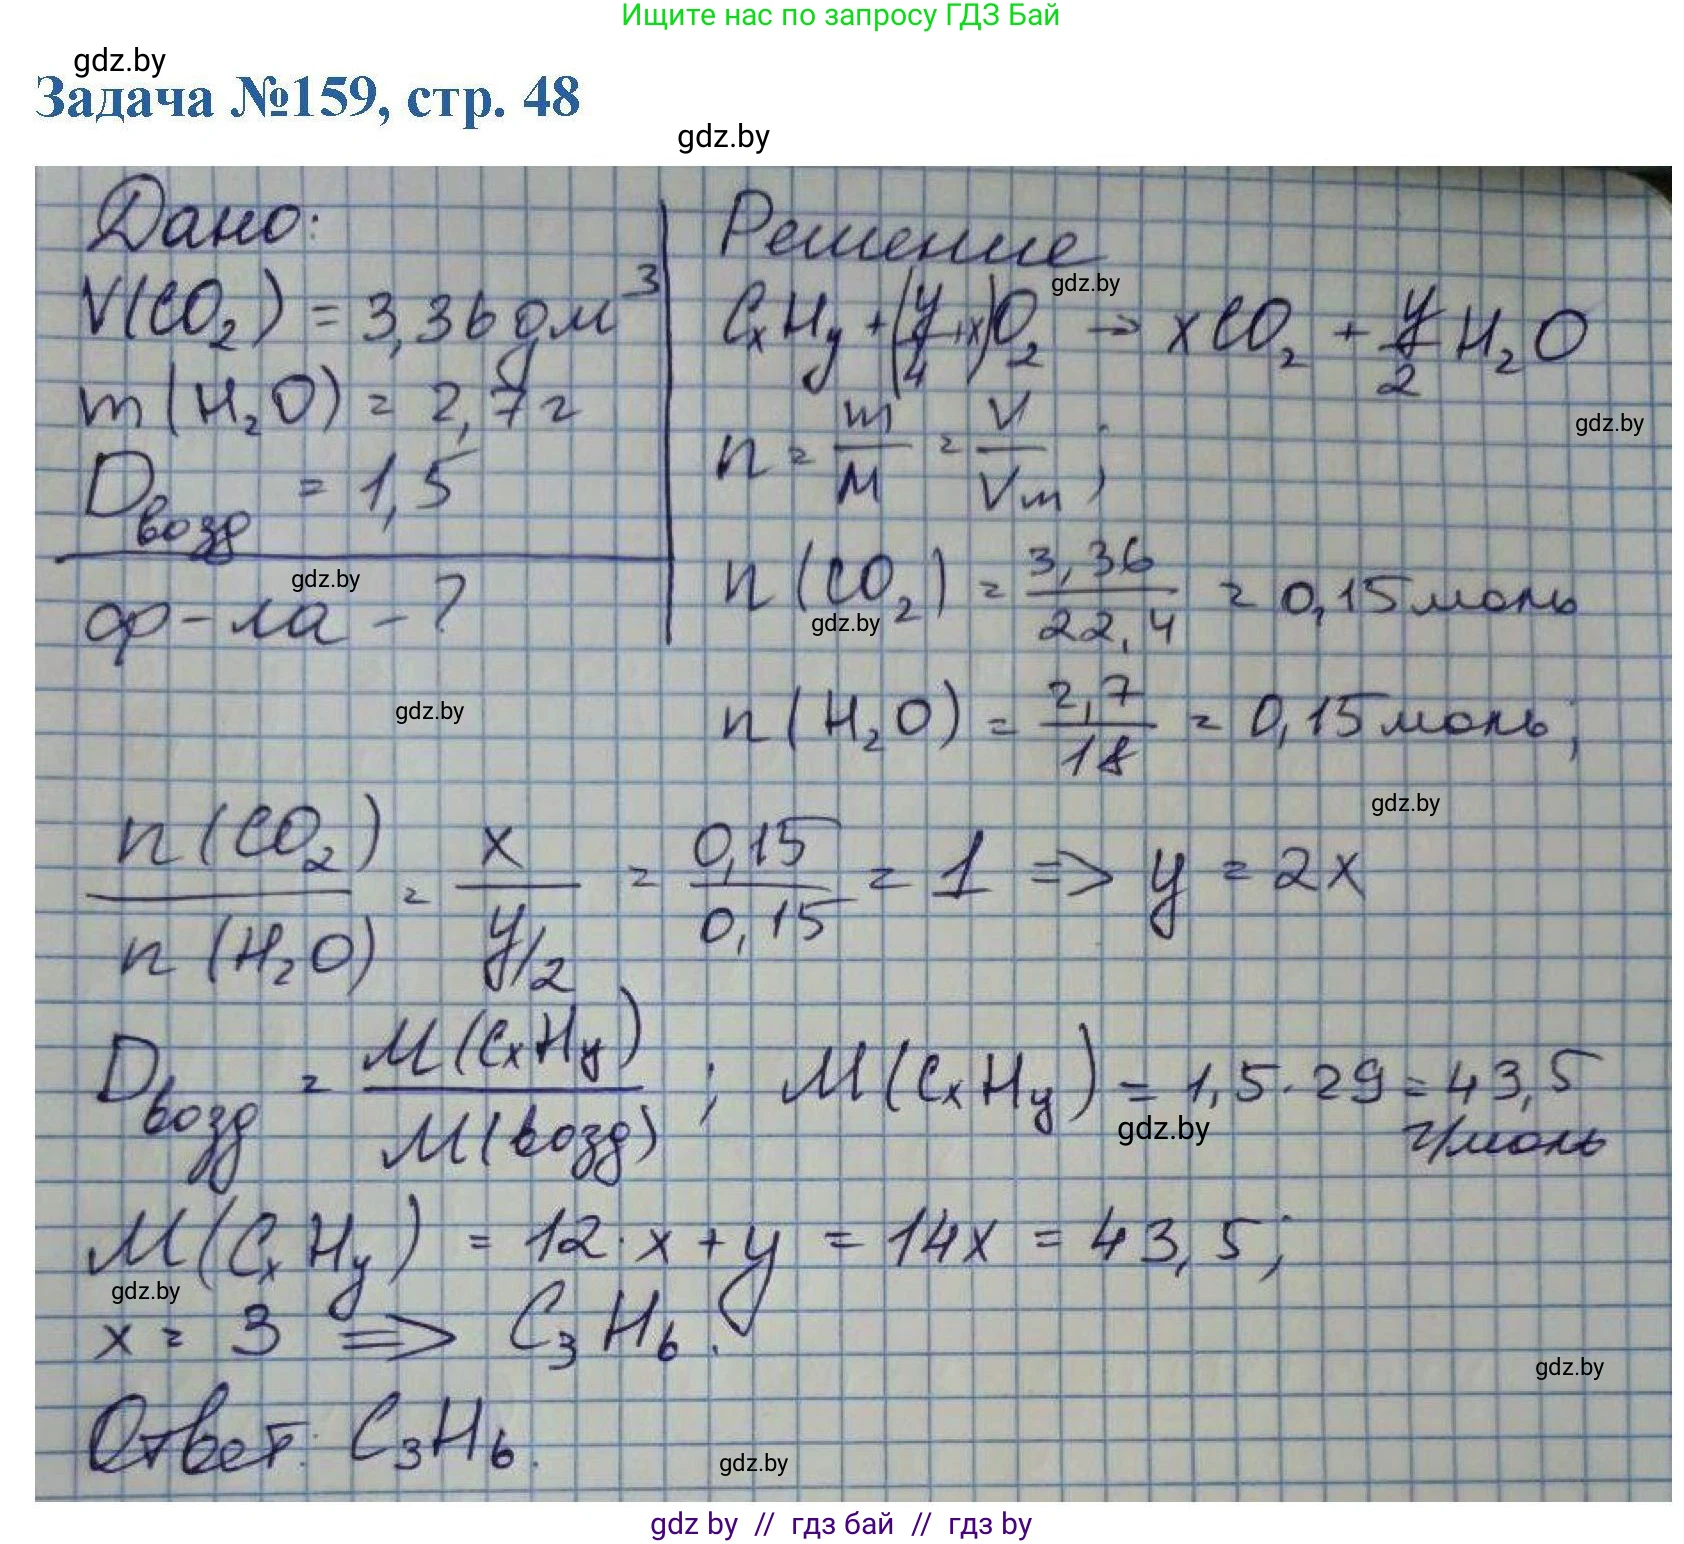 Ищите нас по запросу ГДЗ Бай
gdz.by
Задача №159, стр. 48
gdz.by
Дано:
V(CO₂) = 3,36 дм³
m(H₂O) = 2,7 г
Dвозд = 1,5
gdz.by
ф-ла - ?
gdz.by
Решение
gdz.by
CxHy + (y/4 + x)O₂ → xCO₂ + y/2 H₂O
gdz.by
n = m/M = V/Vm ;
n(CO₂) = 3,36/22,4 = 0,15 моль
gdz.by
n(H₂O) = 2,7/18 = 0,15 моль;
gdz.by
n(CO₂)/n(H₂O) = x/(y/2) = 0,15/0,15 = 1 => y = 2x
Dвозд = M(CxHy)/M(возд) ; M(CxHy) = 1,5 · 29 = 43,5 г/моль
gdz.by
M(CxHy) = 12 · x + y = 14x = 43,5;
gdz.by
x = 3 => C₃H₆.
gdz.by
Ответ: C₃H₆.
gdz.by
gdz by // гдз бай // гдз by